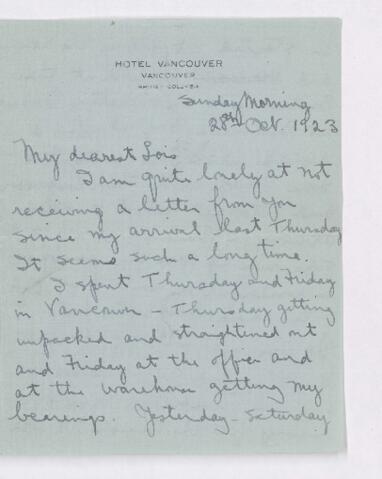 HOTEL VANCOUVER
VANCOUVER
BRITISH COLUMBIA
Sunday Morning
28th Oct. 1923
My dearest Lois
I am quite lonely at not
receiving a letter from you
since my arrival last Thursday
It seems such a long time.
I spent Thursday and Friday
in Vancouver - Thursday getting
unpacked and straightened out
and Friday at the office and
at the warehouse getting my
bearings. Yesterday - Saturday